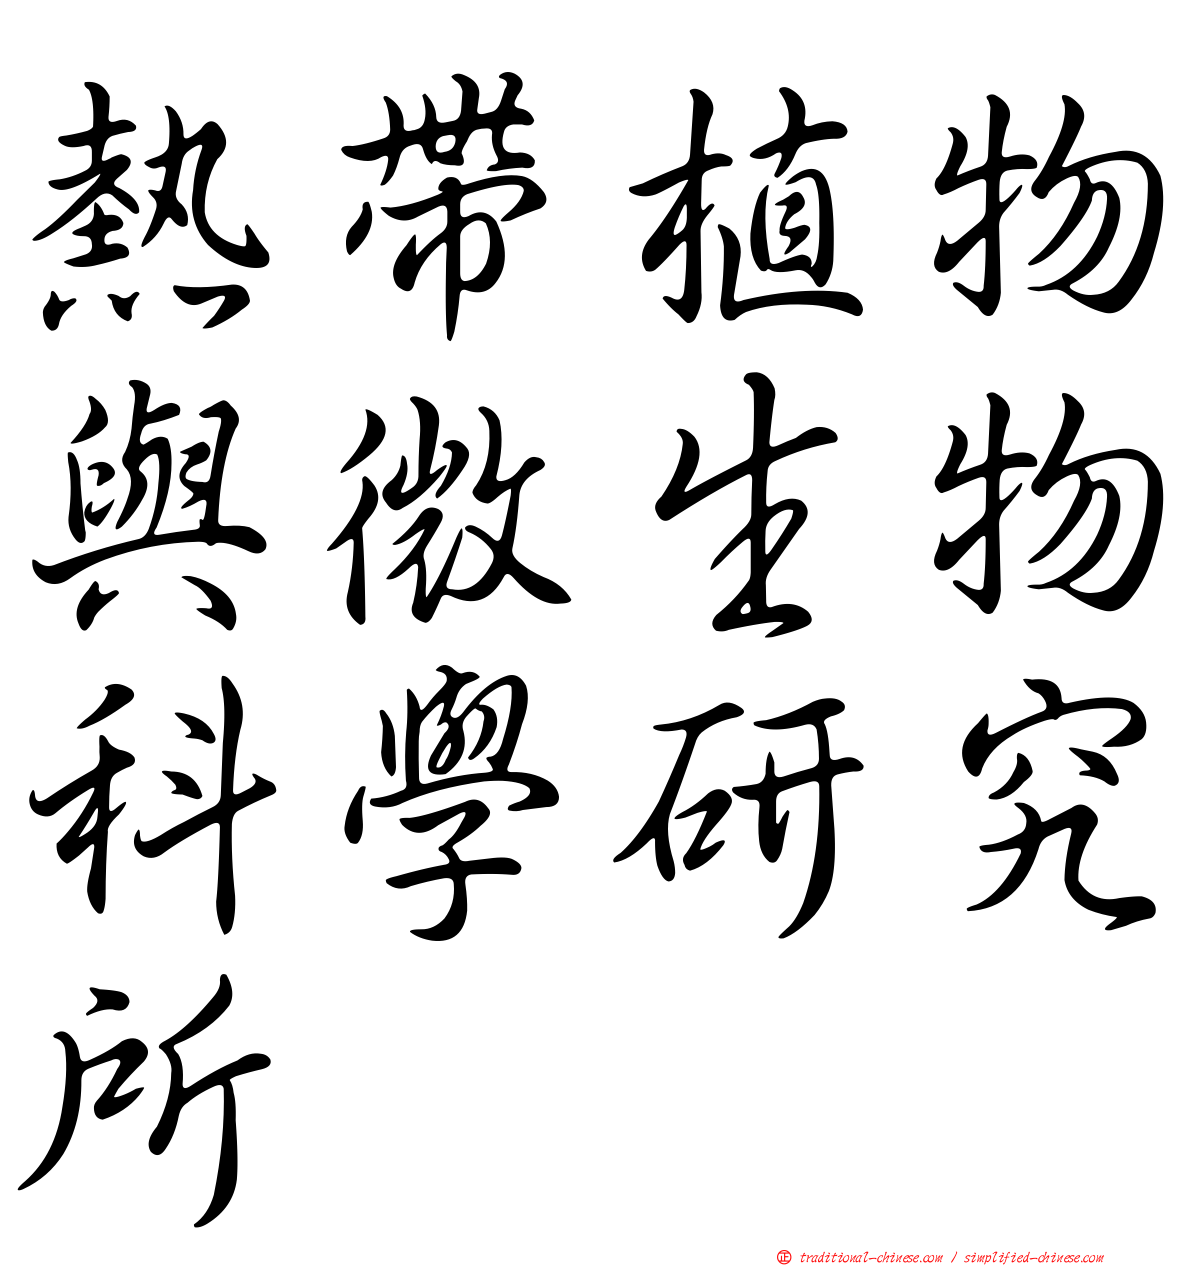 熱帶植物
與微生物
科學研究
所
㊣ traditional-chinese.com / simplified-chinese.com